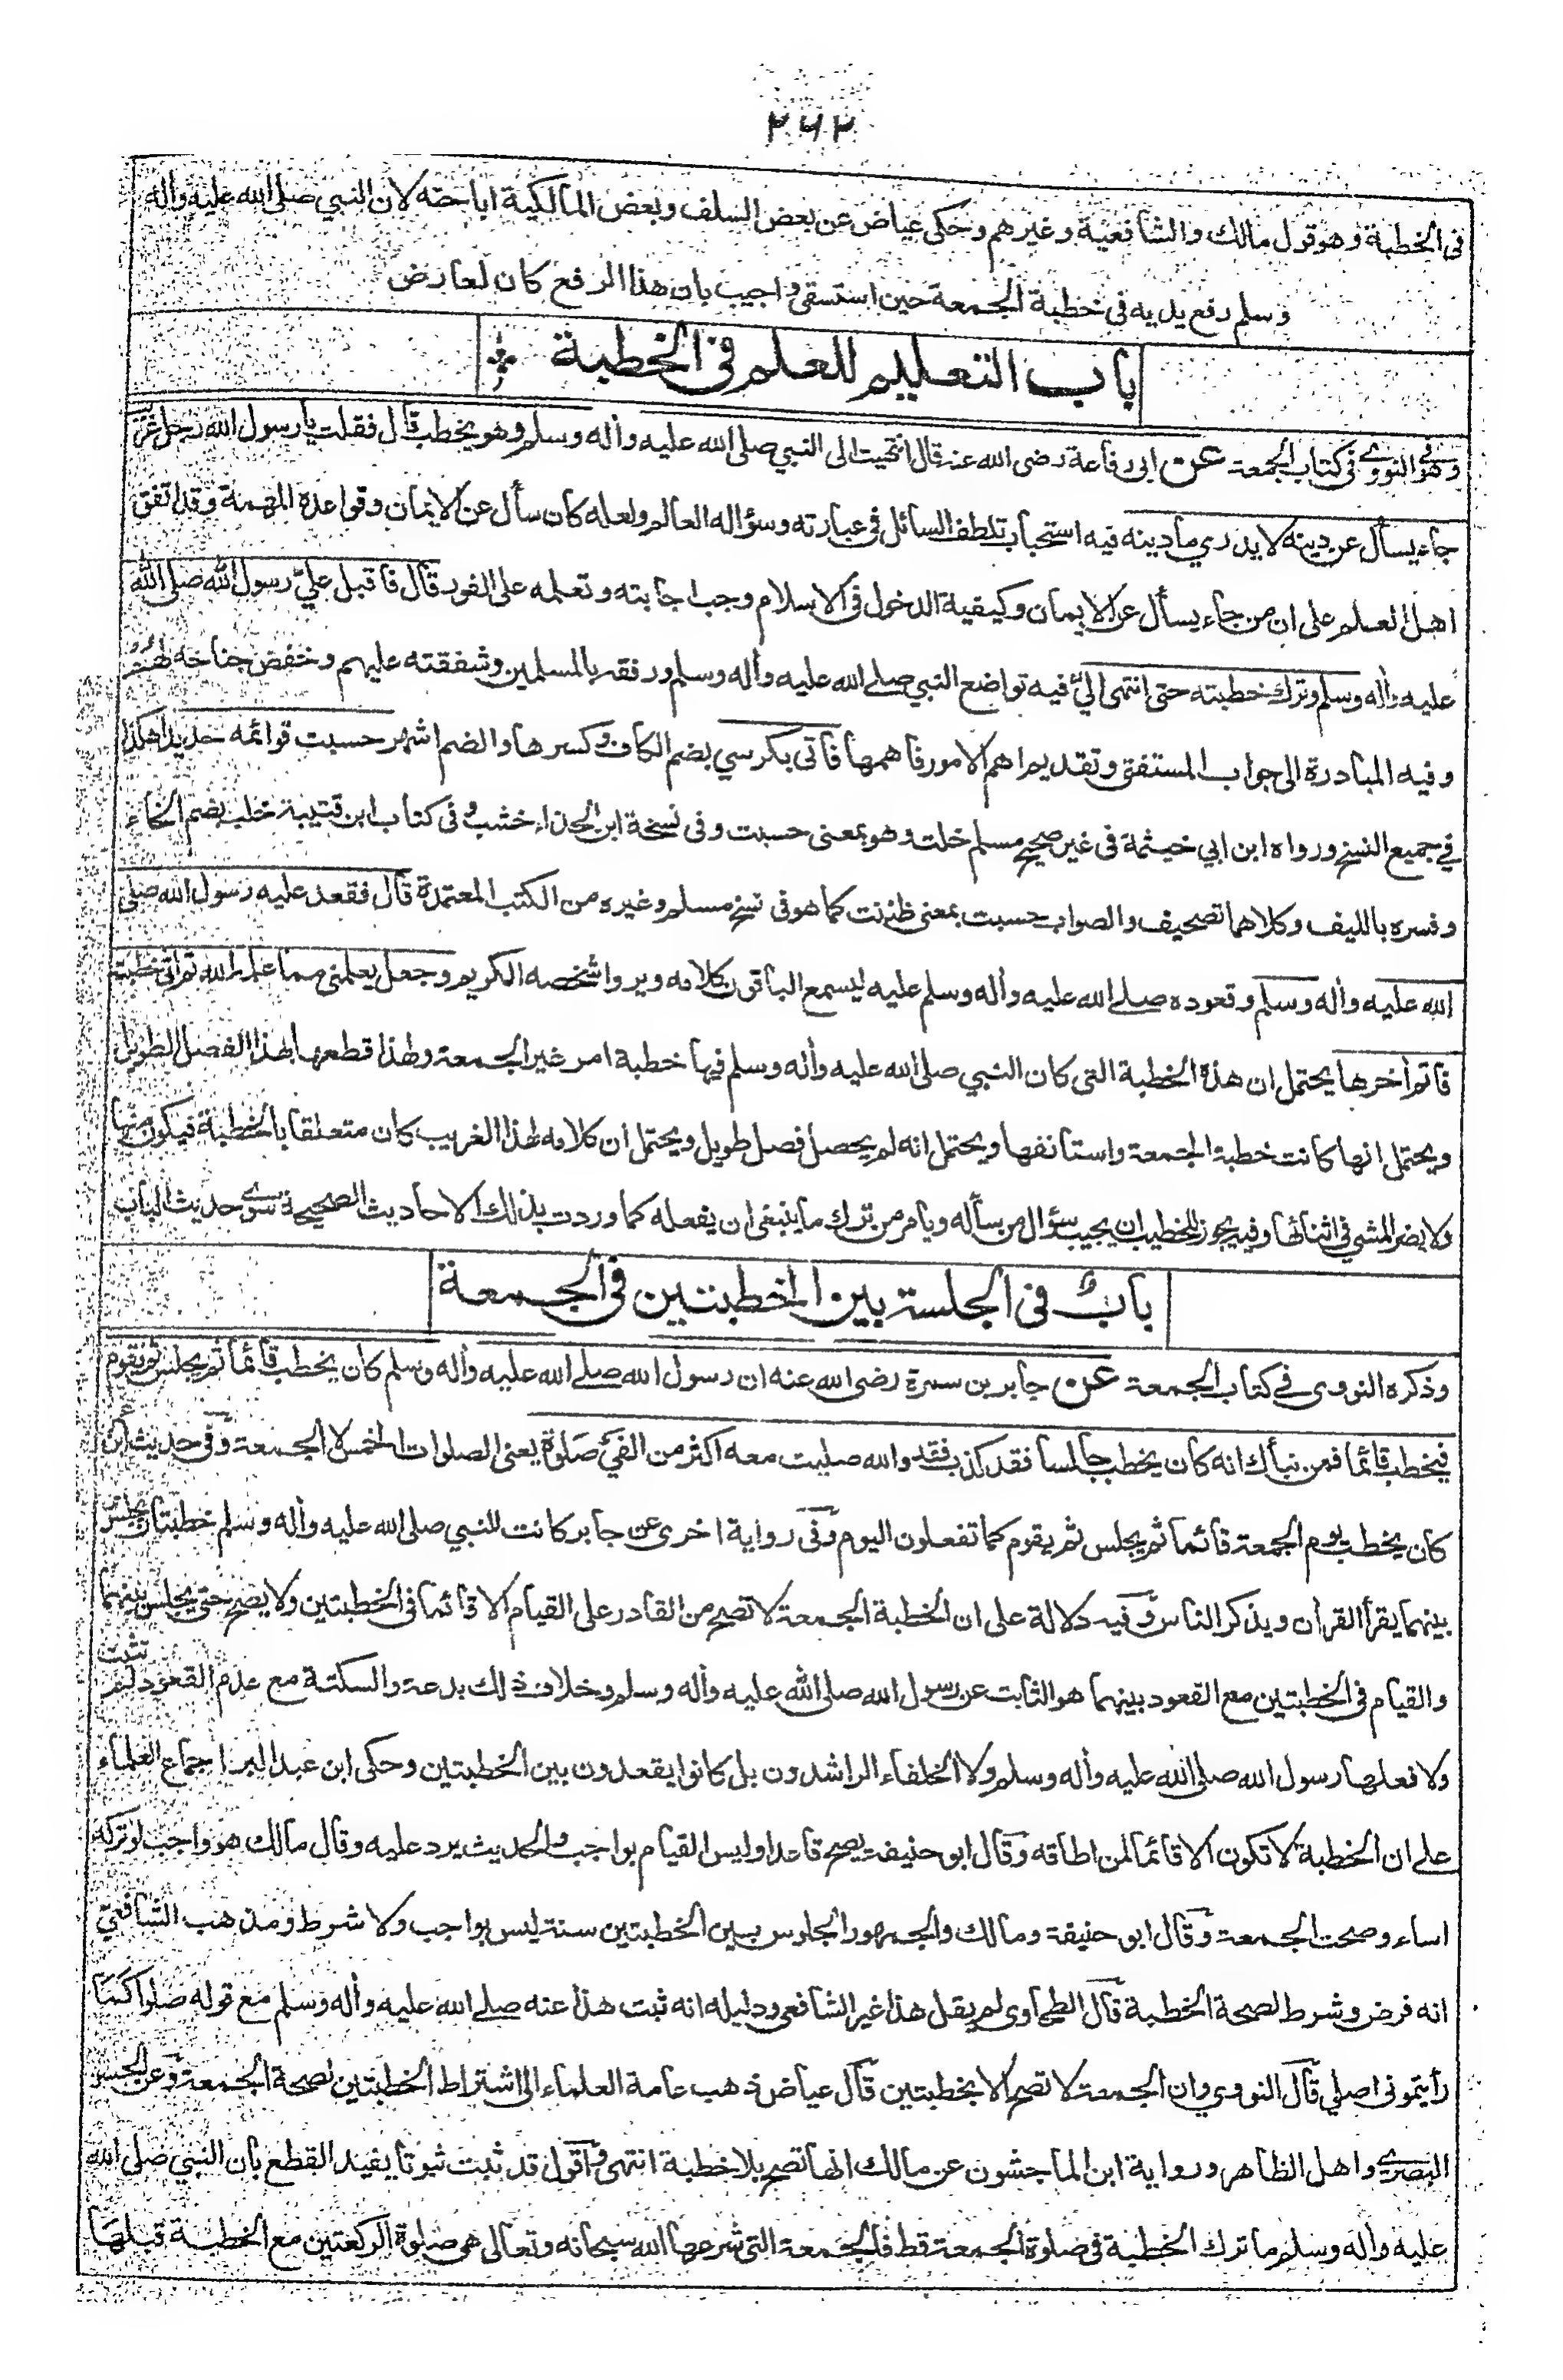 ٢٦٢
فى الخطبة وهو قول مالك والشافعية وغيرهم وحكى عياض عن بعض السلف وبعض المالكية اباحته لان النبي صلى الله عليه وأله
وسلم رفع يديه فى خطبة الجمعة حين استسقى واجيب بان هذا الرفع كان لعارض
باب التعليم للعلم فى الخطبة
وهو فى النووي فى كتاب الجمعة عن ابى رفاعة رضى الله عنه قال انتهيت الى النبي صلى الله عليه وأله وسلم وهو يخطب قال فقلت يا رسول الله رجل غريب
جاء يسأل عن دينه لا يدري ما دينه فيه استحباب تلطف السائل فى عبارته وسؤاله العالم ولعله كان سأل عن الايمان وقواعده المهمة وقد اتفق
اهل العلم على ان من جاء يسأل عن الايمان وكيفية الدخول فى الاسلام وجب اجابته وتعلمه على الفور قال فاقبل علي رسول الله صلى الله
عليه وأله وسلم وترك خطبته حتى انتهى الي فيه تواضع النبي صلے الله عليه وأله وسلم ورفقه بالمسلمين وشفقته عليهم وخفض جناحه لهم
وفيه المبادرة الى جواب المستفتي وتقديم اهم الامور فاهمها فأتى بكرسي بضم الكاف وكسرها والضم اشهر حسبت قوائمه حديدا هكذا
في جميع النسخ ورواه ابن ابي خيثمة فى غير صحيح مسلم خلت وهو بمعنى حسبت وفى نسخة ابن الحذاء خشب وفى كتاب ابن قتيبة خلب بضم الخاء
وفسره بالليف وكلاهما تصحيف والصواب حسبت بمعنى ظننت كما هو فى نسخ مسلم وغيره من الكتب المعتمدة قال فقعد عليه رسول الله صلى
الله عليه وأله وسلم وقعوده صلے الله عليه وأله وسلم عليه ليسمع الباقون كلامه ويروا شخصه الكريم وجعل يعلمنى مما علمه الله ثم اتى خطبته
فاتم أخرها يحتمل ان هذه الخطبة التى كان النبي صلى الله عليه وأله وسلم فيها خطبة امر غير الجمعة ولهذا قطعها بهذا الفصل الطويل
ويحتمل انها كانت خطبة الجمعة واستأنفها ويحتمل انه لم يحصل فصل طويل ويحتمل ان كلامه لهذا الغريب كان متعلقا بالخطبة فيكون منها
ولا يضر المشي فى اثنائها وفيه يجوز للخطيب ان يجيب سؤال من سأله ويامر من ترك ما ينبغى ان يفعله كما وردت بذلك الاحاديث الصحيحة سوى حديث الباب
باب فى الجلسة بين الخطبتين فى الجمعة
وذكره النووى في كتاب الجمعة عن جابر بن سمرة رضى الله عنه ان رسول الله صلے الله عليه وأله وسلم كان يخطب قائما ثم يجلس ثم يقوم
فيخطب قائما فمن نبأك انه كان يخطب جالسا فقد كذب فقد والله صليت معه اكثر من الفي صلوة يعنى الصلوات الخمس لا الجمعة وفى حديث ابن
كان يخطب يوم الجمعة قائما ثم يجلس ثم يقوم كما تفعلون اليوم وفى رواية اخرى عن جابر كانت للنبي صلى الله عليه وأله وسلم خطبتان يجلس
بينهما يقرأ القرأن ويذكر الناس وفيه دلالة على ان الخطبة الجمعة لا تصح من القادر على القيام الا قائما فى الخطبتين ولا يصح حتى يجلس بينهما
والقيام فى الخطبتين مع القعود بينهما هو الثابت عن رسول الله صلى الله عليه وأله وسلم وخلاف ذلك بدعة والسكتة مع عدم القعود لم تثبت
ولا فعلها رسول الله صلى الله عليه وأله وسلم ولا الخلفاء الراشدون بل كانوا يقعدون بين الخطبتين وحكى ابن عبد البر اجماع العلماء
على ان الخطبة لا تكون الا قائما لمن اطاقه وقال ابو حنيفة يصح قاعدا وليس القيام بواجب والحديث يرد عليه وقال مالك هو واجب لو تركه
اساء وصحت الجمعة وقال ابو حنيفة ومالك والجمهور الجلوس بين الخطبتين سنة ليس بواجب ولا شرط ومذهب الشافعي
انه فرض وشرط لصحة الخطبة قال الطحاوى لم يقل هذا غير الشافعى ودليله انه ثبت هذا عنه صلے الله عليه وأله وسلم مع قوله صلوا كما
رأيتمونى اصلي قال النووي وان الجمعة لا تصح الا بخطبتين قال عياض ذهب عامة العلماء الى اشتراط الخطبتين لصحة الجمعة وعن الحسن
البصري واهل الظاهر ورواية ابن الماجشون عن مالك انها تصح بلا خطبة انتهى واقول قد ثبت ثبوتا يفيد القطع بان النبي صلى الله
عليه وأله وسلم ما ترك الخطبة فى صلوة الجمعة قط فالجمعة التى شرعها الله سبحانه وتعالى هى صلوة الركعتين مع الخطبة قبلها